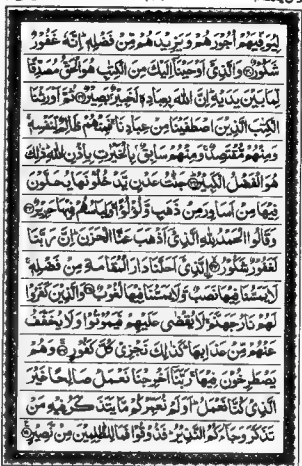 لِيُوَفِّيَهُمْ أُجُورَهُمْ وَيَزِيدَهُمْ مِّنْ فَضْلِهٖ إِنَّهٗ غَفُورٌ
شَكُورٌ وَالَّذِيٓ أَوْحَيْنَآ إِلَيْكَ مِنَ الْكِتٰبِ هُوَ الْحَقُّ مُصَدِّقًا
لِّمَا بَيْنَ يَدَيْهِ إِنَّ اللّٰهَ بِعِبَادِهٖ لَخَبِيرٌۢ بَصِيرٌ ثُمَّ أَوْرَثْنَا
الْكِتٰبَ الَّذِينَ اصْطَفَيْنَا مِنْ عِبَادِنَا فَمِنْهُمْ ظَالِمٌ لِّنَفْسِهٖ
وَمِنْهُمْ مُّقْتَصِدٌ وَمِنْهُمْ سَابِقٌۢ بِالْخَيْرٰتِ بِإِذْنِ اللّٰهِ ذٰلِكَ
هُوَ الْفَضْلُ الْكَبِيرُ جَنّٰتُ عَدْنٍ يَّدْخُلُونَهَا يُحَلَّوْنَ
فِيهَا مِنْ أَسَاوِرَ مِنْ ذَهَبٍ وَّلُؤْلُؤًا وَلِبَاسُهُمْ فِيهَا حَرِيرٌ
وَقَالُوا الْحَمْدُ لِلّٰهِ الَّذِيٓ أَذْهَبَ عَنَّا الْحَزَنَ إِنَّ رَبَّنَا
لَغَفُورٌ شَكُورٌ الَّذِيٓ أَحَلَّنَا دَارَ الْمُقَامَةِ مِنْ فَضْلِهٖ
لَا يَمَسُّنَا فِيهَا نَصَبٌ وَّلَا يَمَسُّنَا فِيهَا لُغُوبٌ وَالَّذِينَ كَفَرُوا
لَهُمْ نَارُ جَهَنَّمَ لَا يُقْضٰى عَلَيْهِمْ فَيَمُوتُوا وَلَا يُخَفَّفُ
عَنْهُمْ مِّنْ عَذَابِهَا كَذٰلِكَ نَجْزِي كُلَّ كَفُورٍ وَهُمْ
يَصْطَرِخُونَ فِيهَا رَبَّنَآ أَخْرِجْنَا نَعْمَلْ صَالِحًا غَيْرَ
الَّذِي كُنَّا نَعْمَلُ أَوَلَمْ نُعَمِّرْكُمْ مَّا يَتَذَكَّرُ فِيهِ مَنْ
تَذَكَّرَ وَجَآءَكُمُ النَّذِيرُ فَذُوقُوا فَمَا لِلظّٰلِمِينَ مِنْ نَّصِيرٍ